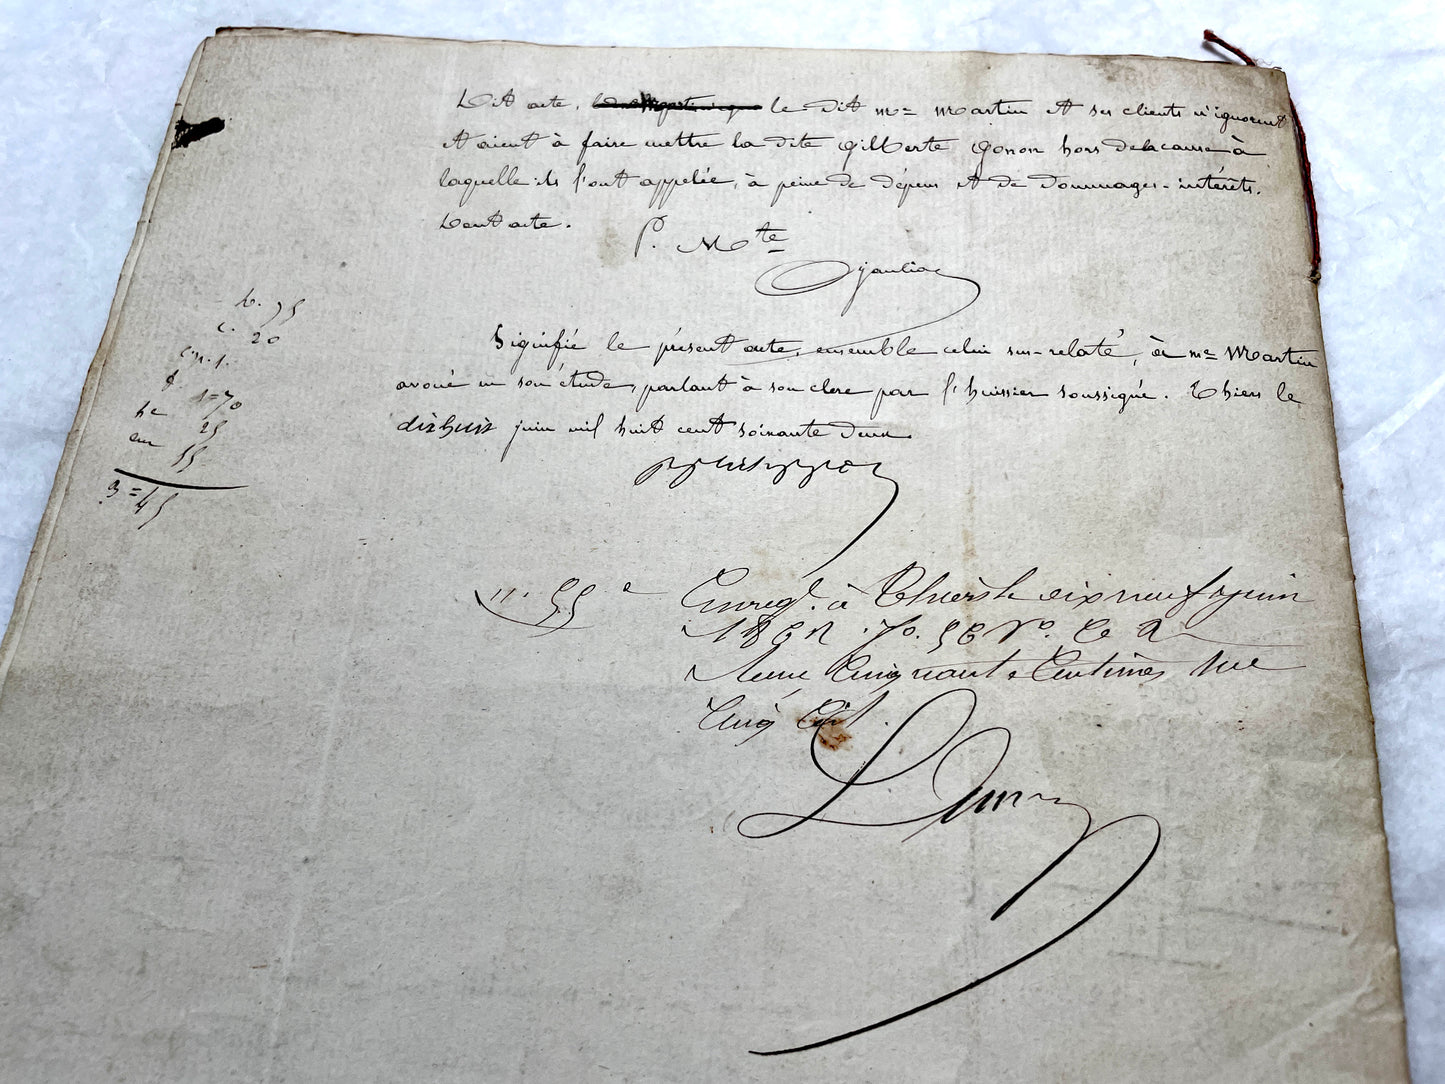 Dit acte, le dit me Martin et ses clients n'ignorent
et aient à faire mettre la dite Gilberte Gonon hors de la cause à
laquelle ils l'ont appelée, à peine de dépens et de dommages-intérêts.
Dont acte.
P. Mte
1. 20
1=70
25
55
3=45
Signifié le présent acte, ensemble celui sus-relaté, à me Martin
avoué en son étude, parlant à son clerc par l'huissier soussigné. Thiers le
dix huit juin mil huit cent soixante deux.
n. 55 c
Enregt. à Thiers le dix neuf juin
1862 fo. 56 Vo. C 2
cinquante centimes
cinq